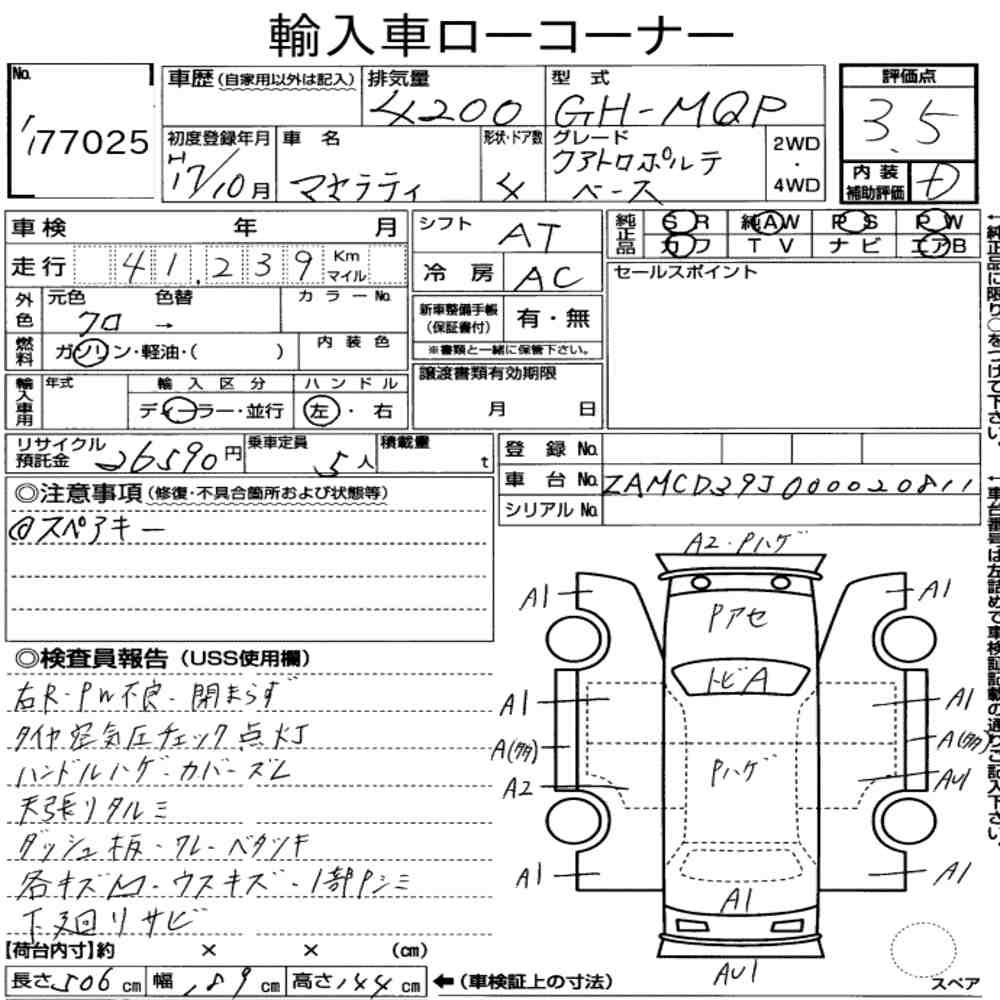 輸入車ローコーナー
No. 177025
車歴 (自家用以外は記入) 排気量 4200 型式 GH-MQP
評価点 3.5
初度登録年月 H17/10月 車名 マセラティ 形状・ドア数 4 グレード クアトロポルテ ベース 2WD・4WD
内装補助評価 D
車検 年 月
シフト AT
純正品 SR 純AW PS PW
カワ TV ナビ エアB
走行 41,239 Km マイル
冷房 AC
セールスポイント
外色 元色 クロ → 色替 カラーNo.
新車整備手帳 (保証書付) 有・無
※書類と一緒に保管下さい。
燃料 ガソリン・軽油・( ) 内装色
輸入車用 年式 輸入区分 ディーラー・並行 ハンドル 左・右
譲渡書類有効期限
月 日
リサイクル預託金 26590円 乗車定員 5人 積載量 t
登録No.
車台No. ZAMCD39J000020811
シリアルNo.
◎注意事項 (修復・不具合箇所および状態等)
@スペアキー
◎検査員報告 (USS使用欄)
右R-PW不良・閉まらず
タイヤ空気圧チェック点灯
ハンドルハゲ・カバーズレ
天張リタルミ
ダッシュ板・ワレ・ベタツキ
各キズ凹・ウスキズ・1部Pシミ
下廻リサビ
A2・Pハゲ
A1
A1
Pアセ
トビA
A1
A1
A(多)
A(多)
Pハゲ
A2
AU1
A1
A1
A1
AU1
【荷台内寸】約 × × (cm)
長さ 506 cm 幅 189 cm 高さ 144 cm ←(車検証上の寸法)
スペア
←純正品に限り○をつけて下さい。
←車台番号は左詰めで車検証記載の通りご記入下さい。